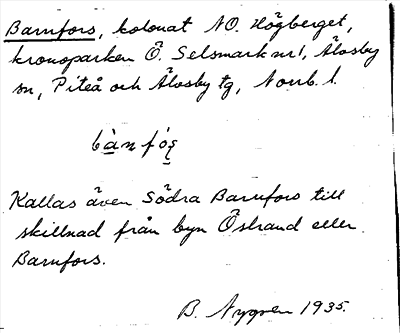 Barnfors, kolonat NO. Högberget,
kronoparken Ö. Selsmark nr 1, Älvsby
sn, Piteå och Älvsby tg, Norrb. l.
bàn fóṣ
Kallas även Södra Barnfors till
skillnad från byn Östrand eller
Barnfors.
B. Nygren 1935.